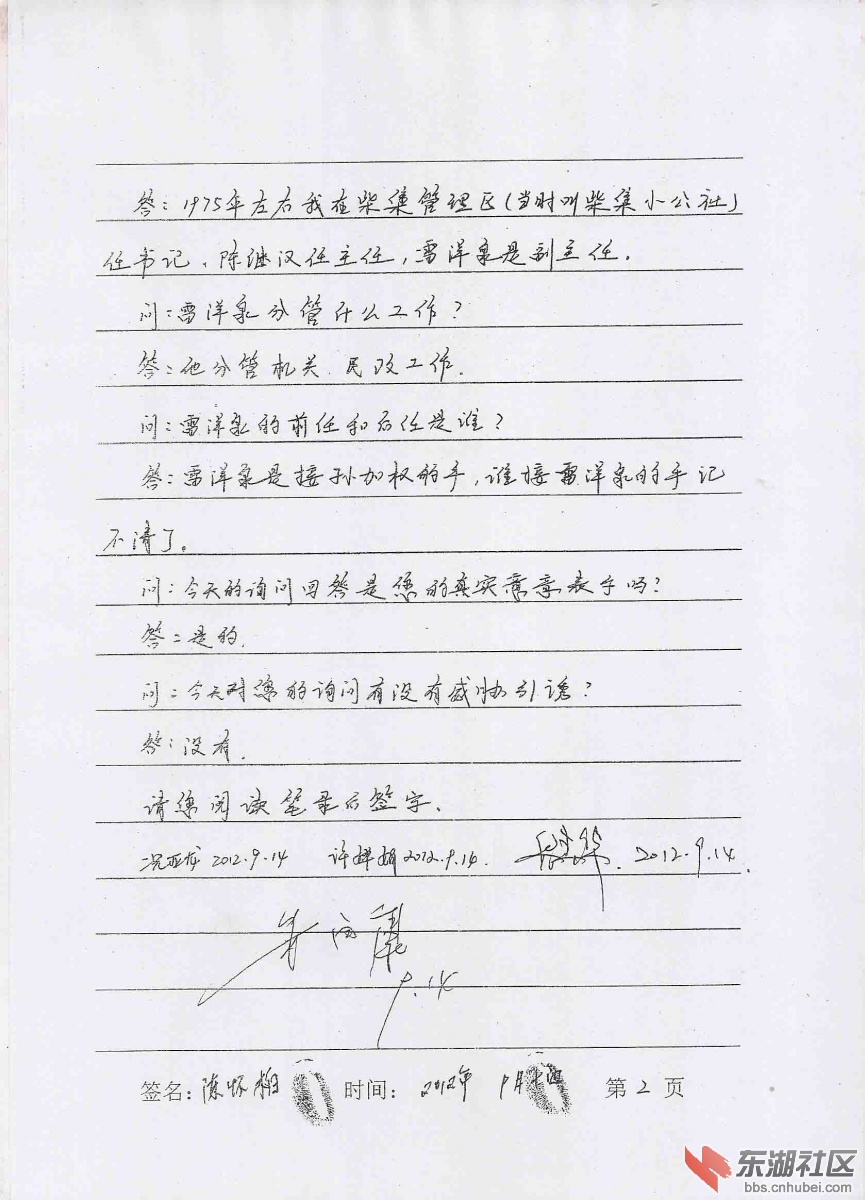 答：1975年左右我在柴集管理区（当时叫柴集小公社）
任书记、陈继汉任主任，雷洋泉是副主任.
问：雷洋泉分管什么工作？
答：他分管机关、民政工作.
问：雷洋泉的前任和后任是谁？
答：雷洋泉是接孙加权的手，谁接雷洋泉的手记
不清了。
问：今天的询问回答是您的真实意意表示吗？
答：是的.
问：今天对您的询问有没有威协引诱？
答：没有.
请您阅读笔录后签字.
2012.9.14 2012.9.14. 2012.9.14.
9.14
签名：陈怀 时间：2012年 9月 第2页
东湖社区
bbs.cnhubei.com